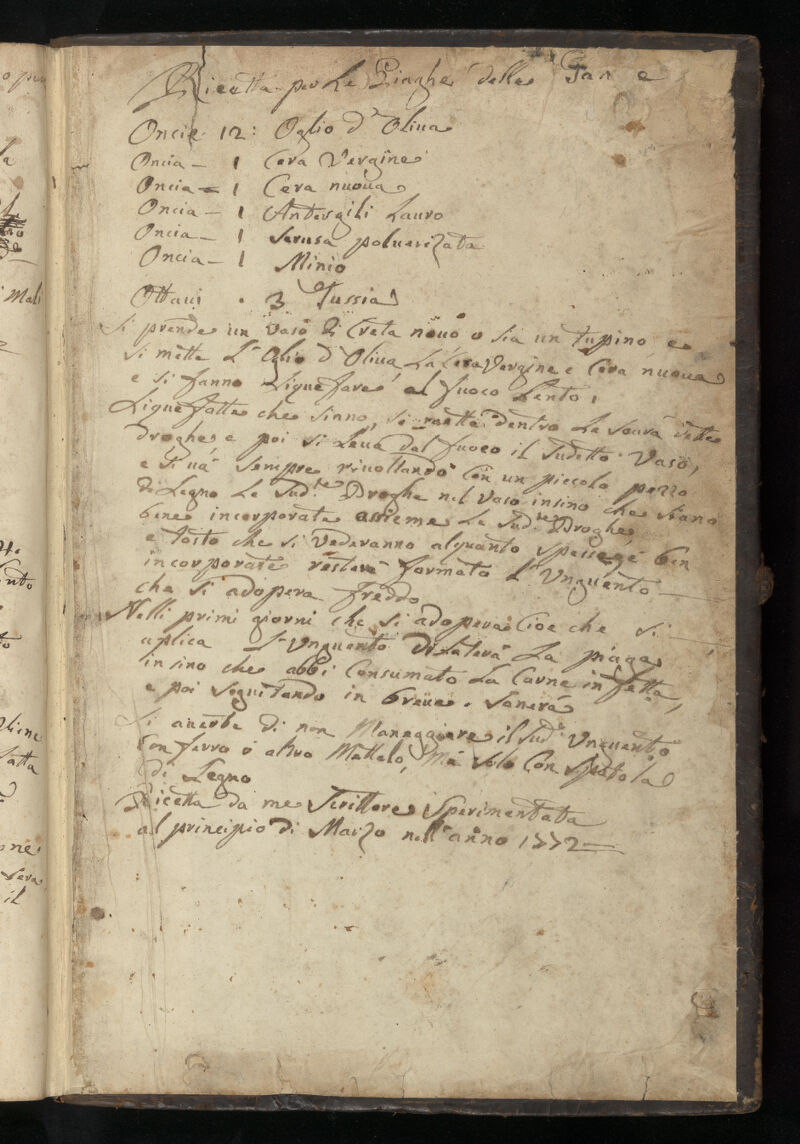 Ricetta per Le Piaghe delle Gambe
Oncie 12: Oglio d'Oliua
Oncia — 1 Cera Vergine
Oncia — 1 Cera nuoua
Oncia — 1 Lauro
Oncia — 1 Serusa poluerizata
Oncia — 1 Minio
Ottaui . 3 Tussia
Si prende un Vaso di Creta nouo o sia un tupino, e
si mette L'Oglio d'Oliua La Cera Vergine e Cera nuoua
e si fanno Liquefare al fuoco Lento,
Liquefatte che sinno, si mette dentro Le soura dette
droghe, e poi si Leua dal fuoco il sudetto Vaso,
e si uà sempre riuoltando con un piccolo pezzo
di Legno Le Sud.te Droghe nel Vaso insino che siano
bene incorporate assieme Le Sud.te Droghe,
e tosto che si Vederanno alquanto spesse e ben
incorporate resterà formato L'Vnguento
che si adopera freddo
Nelli primi giorni che si adopera Cioe che si
aplica L'Vnguento Dilaterà La piaga
insino che abbi Consumato La Carne infetta,
e poi seguitando in breue Sanerà
Si auerte di non Maneggiare il Sud.o Vnguento
Con ferro ò altro Mettalo, Mà solo Con Spatola
di Legno
Ricetta da me Scrittore Sperimentata
al principio di Marzo nell'anno 1772